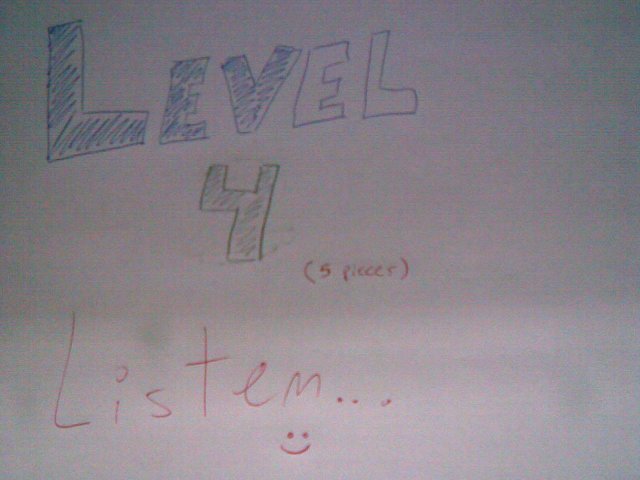 LEVEL
4
(5 pieces)
Listen...